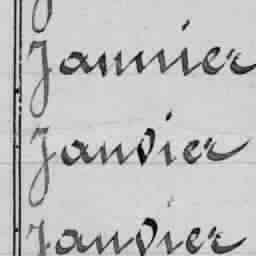 Jannier
Janvier
Janvier